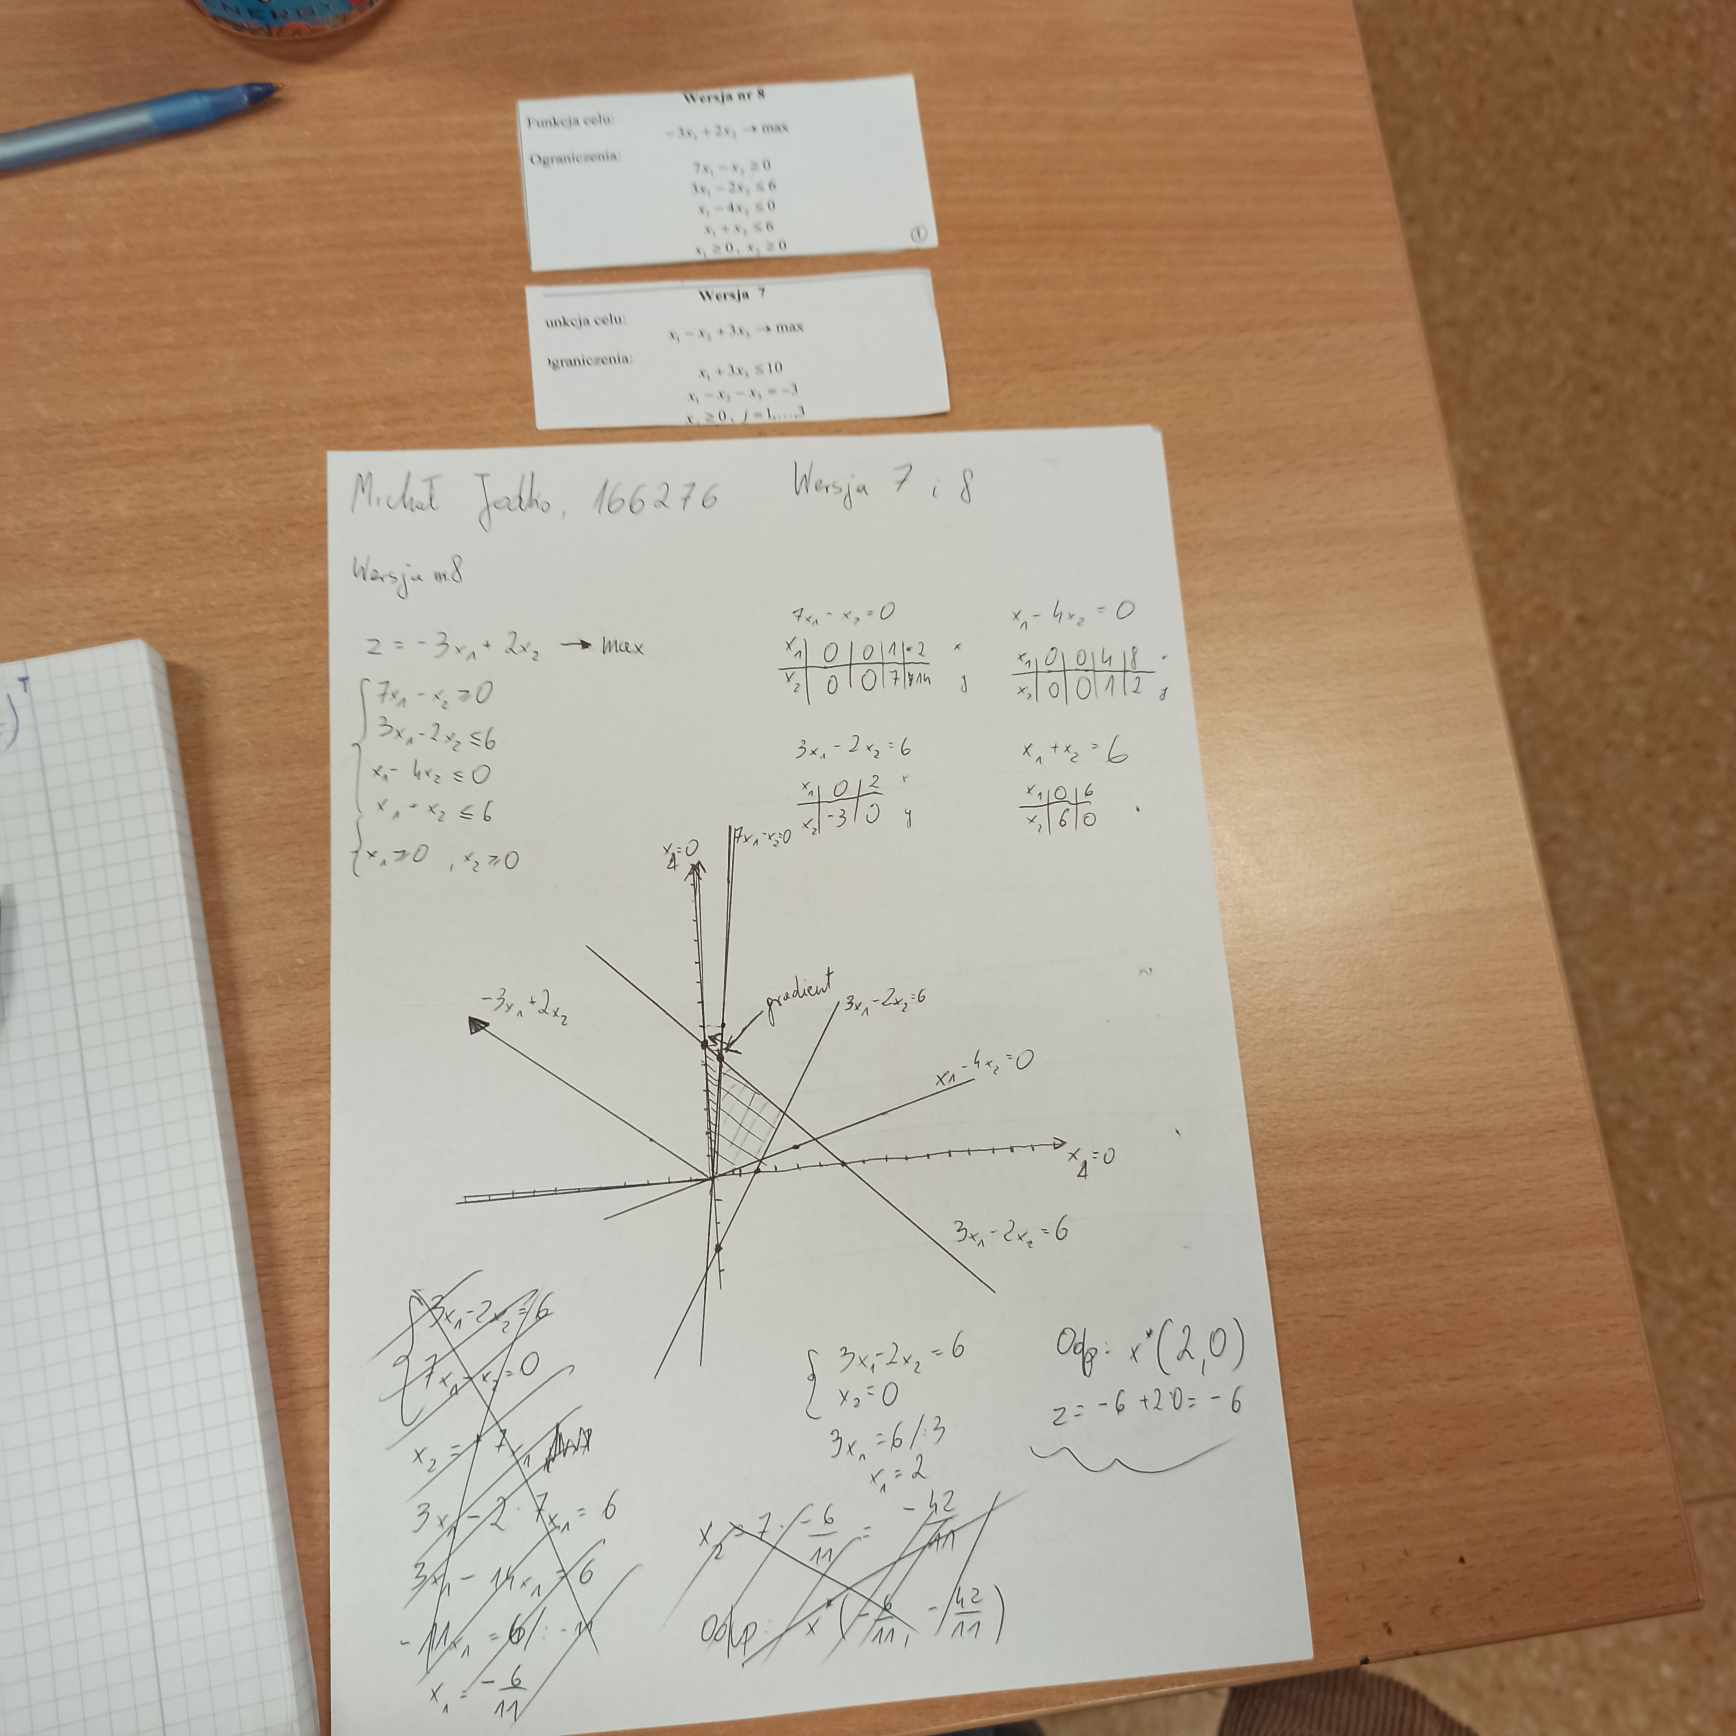 ENERGY
Wersja nr 8
Funkcja celu:
-3x₁ + 2x₂ → max
Ograniczenia:
7x₁ - x₂ ≥ 0
3x₁ - 2x₂ ≤ 6
x₁ - 4x₂ ≤ 0
x₁ + x₂ ≤ 6
x₁ ≥ 0, x₂ ≥ 0
①
Wersja 7
unkcja celu:
x₁ - x₂ + 3x₃ → max
graniczenia:
x₁ + 3x₃ ≤ 10
x₁ - x₂ - x₃ = -3
≥ 0, j = 1,...,3
Michał 166276 Wersja 7 i 8
Wersja nr 8
z = -3x₁ + 2x₂ → max
7x₁ - x₂ ≥ 0
3x₁ - 2x₂ ≤ 6
x₁ - 4x₂ ≤ 0
x₁ - x₂ ≤ 6
x₁ ≥ 0, x₂ ≥ 0
7x₁ - x₂ = 0
x₁ | 0 | 0 | 1 | 2 x
x₂ | 0 | 0 | 7 | 14 y
x₁ - 4x₂ = 0
x₁ | 0 | 0 | 4 | 8
x₂ | 0 | 0 | 1 | 2 y
3x₁ - 2x₂ = 6
x₁ | 0 | 2 x
x₂ | -3 | 0 y
x₁ + x₂ = 6
x₁ | 0 | 6
x₂ | 6 | 0
x₁=0
7x₁ - x₂=0
gradient
-3x₁ + 2x₂
3x₁ - 2x₂ = 6
x₁ - 4x₂ = 0
x₁=0
3x₁ - 2x₂ = 6
3x₁ - 2x₂ = 6
7x₁ - x₂ = 0
x₂ = 7x₁
3x₁ - 2 · 7x₁ = 6
3x₁ - 14x₁ = 6
-11x₁ = 6 /: -11
x₁ = -6/11
3x₁ - 2x₂ = 6
x₂ = 0
3x₁ = 6 /:3
x₁ = 2
x₂ = 7 · -6/11 = -42/11
Odp: x*(-6/11, -42/11)
Odp: x*(2,0)
z = -6 + 2·0 = -6